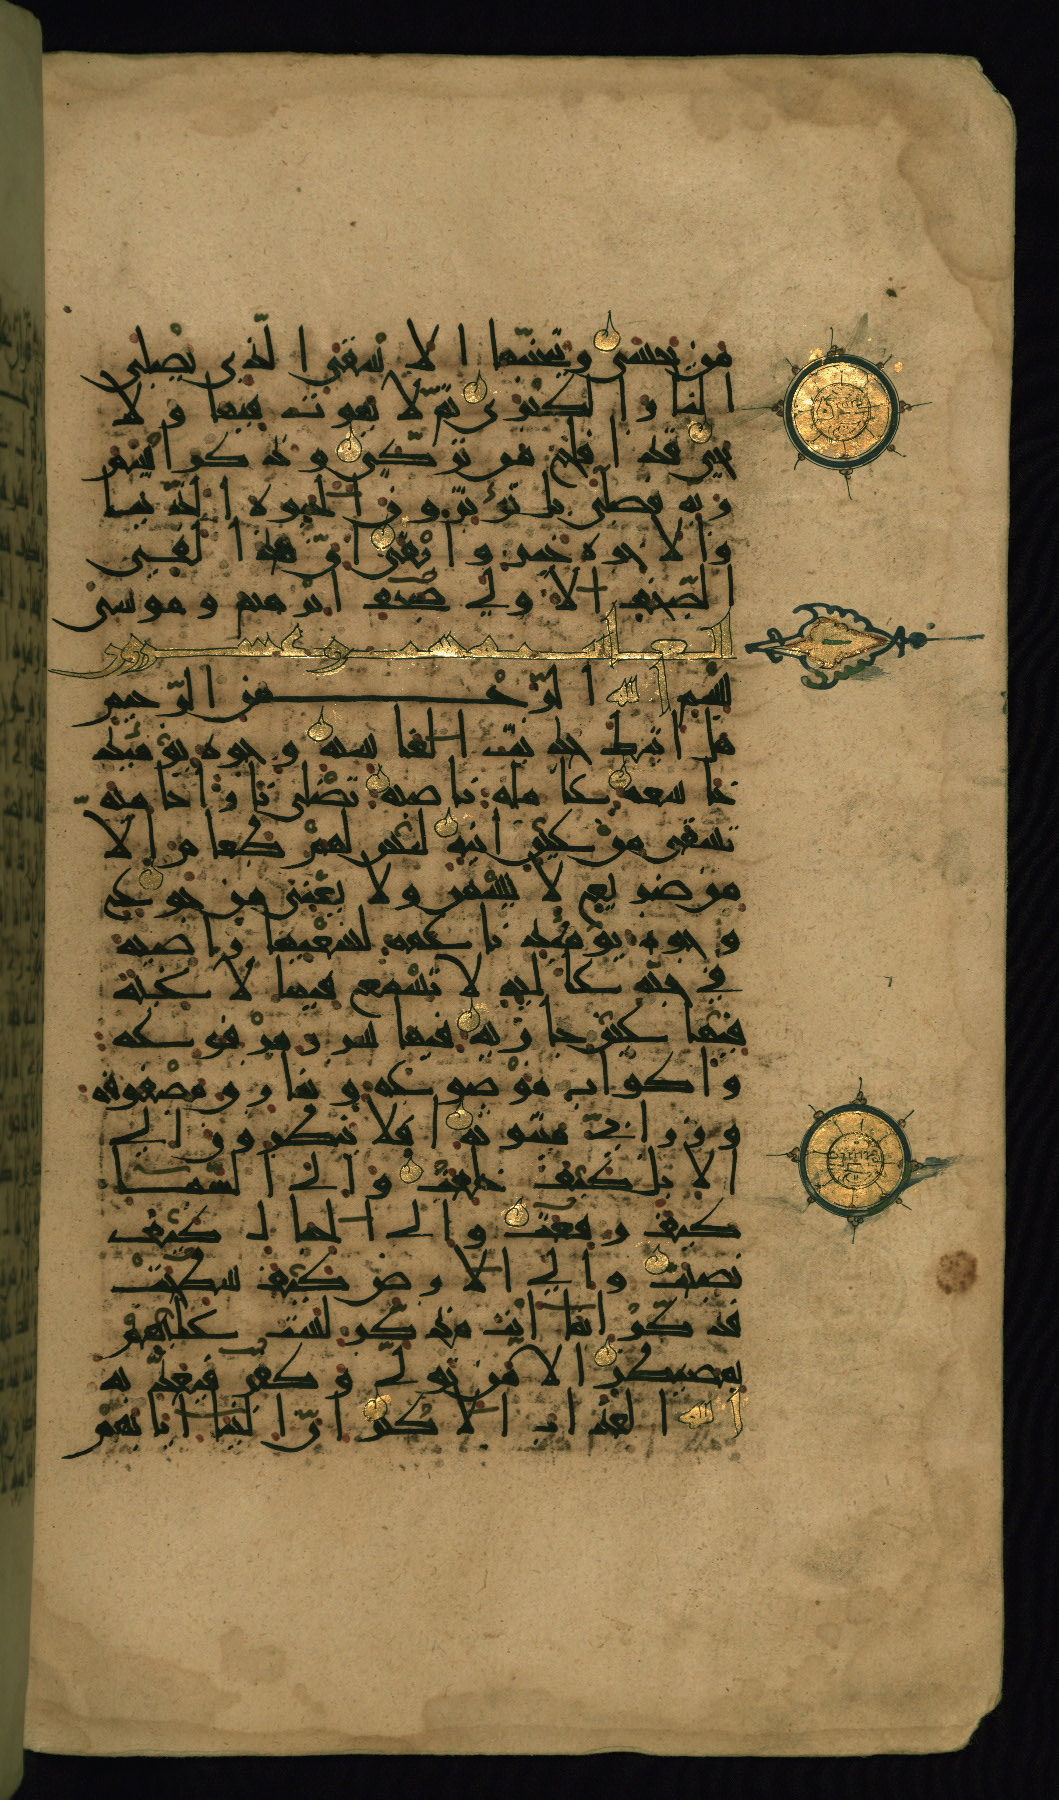 من يخشى ويتجنبها الاشقى الذي يصلى
النار الكبرى ثم لا يموت فيها ولا
يحيى قد افلح من تزكى وذكر اسم
ربه فصلى بل تؤثرون الحيوة الدنيا
والاخرة خير وابقى ان هذا لفي
الصحف الاولى صحف ابرهيم وموسى
الغاشية وعشرون
بسم الله الرحمن الرحيم
هل اتيك حديث الغاشية وجوه يومئذ
خاشعة عاملة ناصبة تصلى نارا حامية
تسقى من عين انية ليس لهم طعام الا
من ضريع لا يسمن ولا يغني من جوع
وجوه يومئذ ناعمة لسعيها راضية
في جنة عالية لا تسمع فيها لاغية
فيها عين جارية فيها سرر مرفوعة
واكواب موضوعة ونمارق مصفوفة
وزرابي مبثوثة افلا ينظرون الى
الابل كيف خلقت والى السماء
كيف رفعت والى الجبال كيف
نصبت والى الارض كيف سطحت
فذكر انما انت مذكر لست عليهم
بمصيطر الا من تولى وكفر فيعذبه
الله العذاب الاكبر ان الينا ايابهم